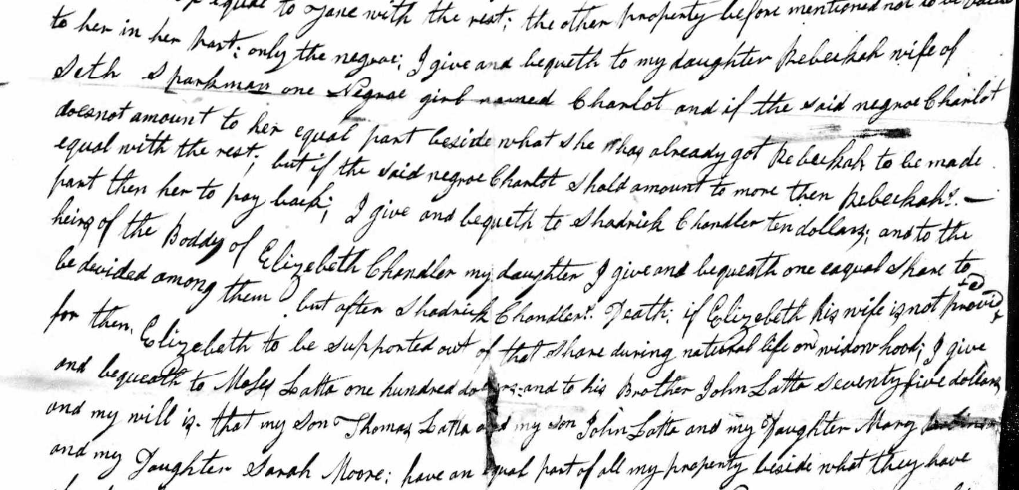 equal to Jane with the rest; the other property before mentioned not to be
to her in her part: only the negroe; I give and bequeth to my daughter Rebeckah wife of
Seth Sparkman one Negroe girl named Charlot and if the said negroe Charlot
doesnot amount to her equal part beside what She has already got Rebeckah to be made
equal with the rest; but if the said negroe Charlot Shold amount to more then Rebeckahs. —
part then her to pay back; I give and bequeth to Shadrick Chandler ten dollars; and to the
heirs of the Boddy of Elizebeth Chandler my daughter I give and bequeath one eaqual Share to
be devided among them but after Shadrick Chandlers. Death; if Elizebeth his wife is not provid
for then, Elizebeth to be Supported out of that Share during natural life or widowhood; I give
and bequeath to Moses Latta one hundred and to his Brother John Latta Seventy five dollars
and my will is. that my Son Thomas Latta and my Son John Latta and my Daughter Mary
and my Daughter Sarah Moore; have an equal part of all my property beside what they have